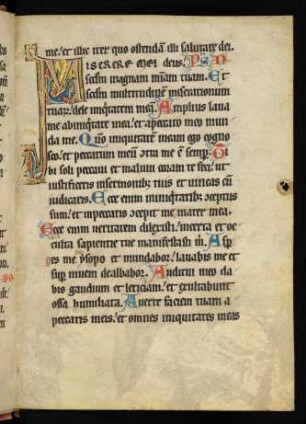 me. et illic iter quo ostendā illi salutare dei.
MISERERE MEI deus. PS
secdm magnam mīam tuam. Et
secdm multitudinē miserationum
tuarꝝ. dele iniqtatem meā. Amplius laua
me ab iniqtate mea. et a peccato meo mun
da me. Qm̄ iniquitatem meam ego cogno
sco. et peccatum meū ctra me ē semp. Ti
bi soli peccaui et malum coram te feci. ut
iustificeris in sermonibus tuis et uincas cū
iudicaris. Ecce enim in iniqtatibus cceptus
sum. et in peccatis ccepit me mater mea.
Ecce enim ueritatem dilexisti. incerta et oc
culta sapientie tue manifestasti m. Asp
ges me ysopo et mundabor. lauabis me et
sup niuem dealbabor. Auditui meo da
bis gaudium et leticiam. et exultabunt
ossa humiliata. Auerte faciem tuam a
peccatis meis. et omnes iniquitates meas